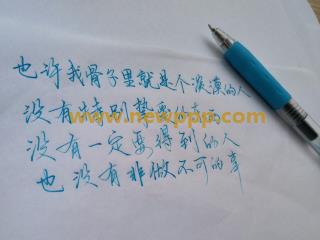 也许我骨子里就是个淡漠的人
没有特别热要的东西
没有一定要得到的人
也没有非做不可的事
www.newppp.com